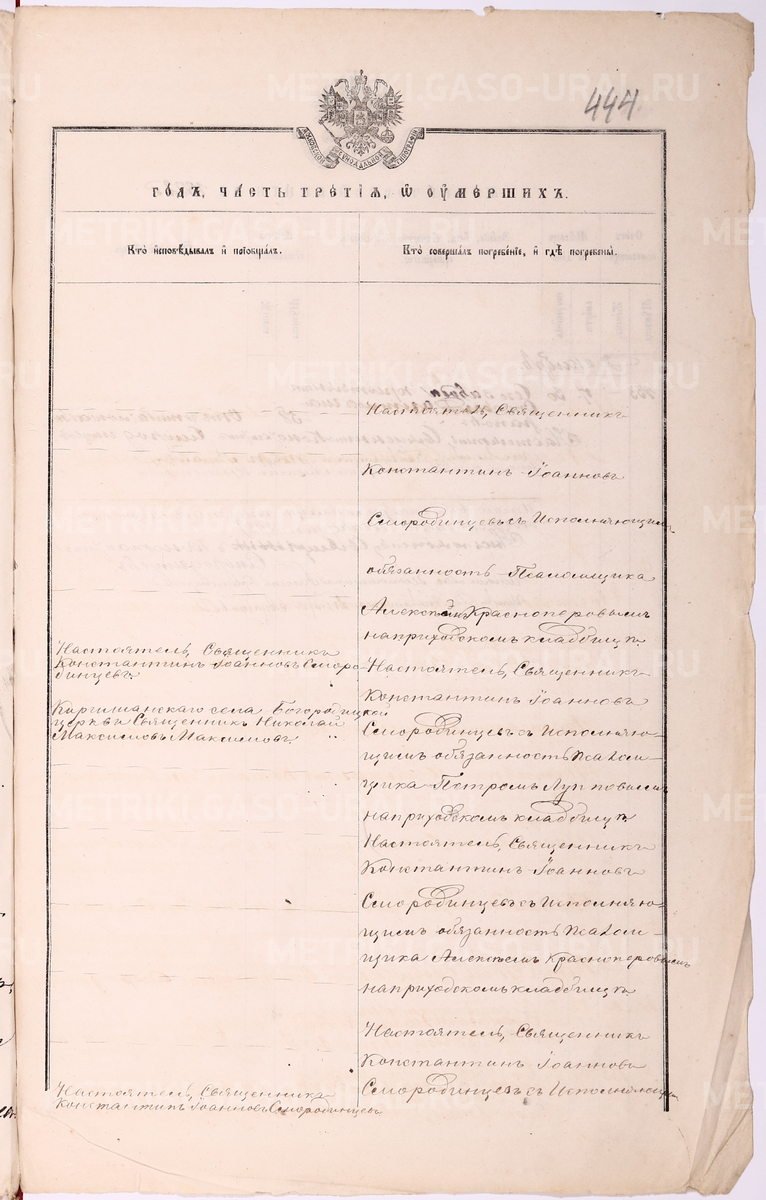 444.
МОСКОВСКОЙ СИНОДАЛЬНОЙ ТИПОГРАФІИ
ГОДЪ, ЧАСТЬ ТРЕТІЯ, Ѡ ОУМЕРШИХЪ.
Кто исповѣдывалъ и пріобщалъ.
Кто совершалъ погребеніе, и гдѣ погребены.
Настоятель, Священникъ
Константинъ Іоанновъ
Смородинцевъ съ Исполняющимъ
обязанность Псаломщика
Алексѣемъ Красноперовымъ
на приходскомъ кладбищѣ.
Настоятель, Священникъ
Константинъ Іоанновъ Сморо-
динцевъ.
Настоятель, Священникъ
Константинъ Іоанновъ
Каргишанскаго села Богородицкой
церкви Священникъ Николай
Максимовъ Максимовъ.
Смородинцевъ съ Исполняю-
щимъ обязанность Псалом-
щика Петромъ Лупповымъ
на приходскомъ кладбищѣ
Настоятель, Священникъ
Константинъ Іоанновъ
Смородинцевъ съ Исполняю-
щимъ обязанность Псалом-
щика Алексѣемъ Красноперовымъ
на приходскомъ кладбищѣ.
Настоятель, Священникъ
Константинъ Іоанновъ
Смородинцевъ съ Исполняющимъ
Настоятель, Священникъ
Константинъ Іоанновъ Смородинцевъ
METRIKI.GASO-URAL.RU